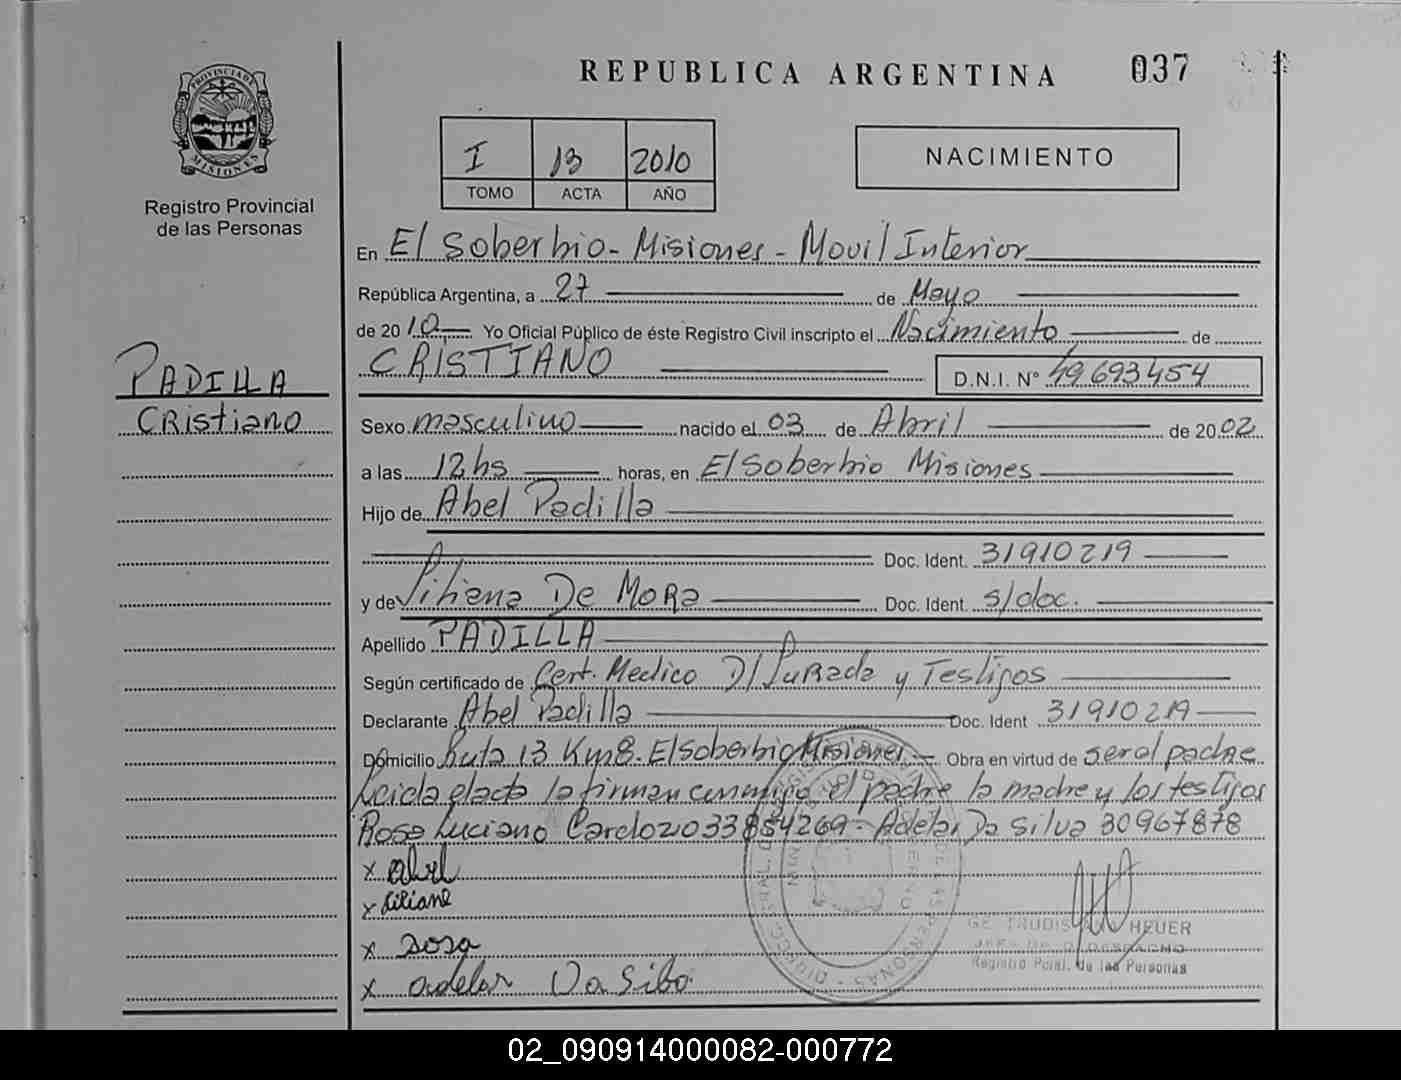 REPUBLICA ARGENTINA 037
PROVINCIA DE MISIONES
Registro Provincial
de las Personas
I 13 2010
TOMO ACTA AÑO
NACIMIENTO
En El Soberbio - Misiones - Movil Interior
República Argentina, a 27 de Mayo
de 2010 Yo Oficial Público de éste Registro Civil inscripto el Nacimiento de
CRISTIANO D.N.I. N° 49693454
PADILLA
Cristiano
Sexo masculino nacido el 03 de Abril de 2002
a las 12 hs horas, en El Soberbio Misiones
Hijo de Abel Padilla
Doc. Ident. 31910219
y de Liliana De Mora Doc. Ident. s/doc.
Apellido PADILLA
Según certificado de Cert. Medico D/Jurada y Testigos
Declarante Abel Padilla Doc. Ident 31910219
Domicilio Ruta 13 Km 8. El Soberbio Misiones - Obra en virtud de ser el padre
Leida el acta la firman conmigo el padre la madre y los testigos
Rosa Luciano Cardozo 33854269 - Adelar Da Silva 30967878
x abel
x liliana
x Rosa
x adelar Da Silva
HEUER
Registro Pcial. de las Personas
02_090914000082-000772